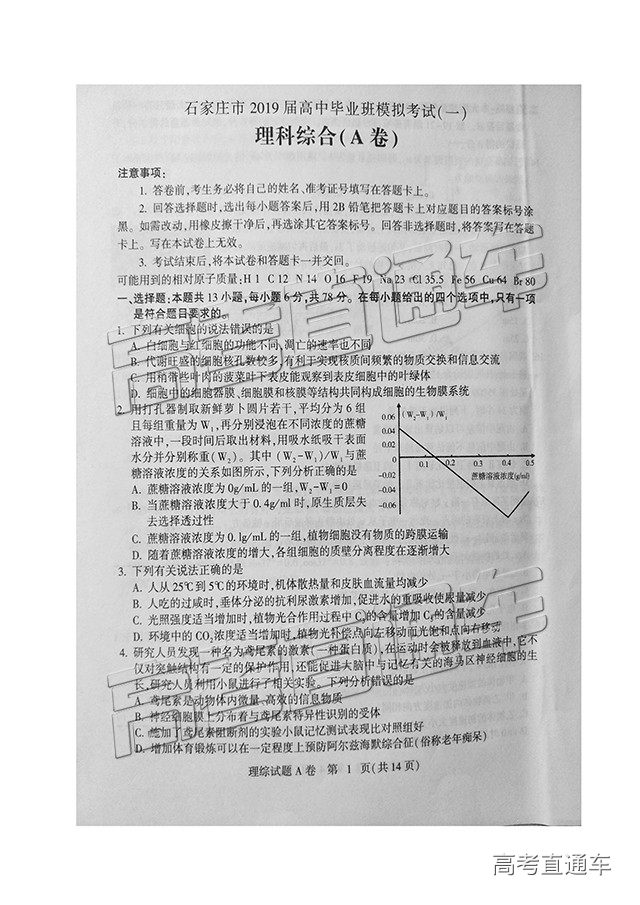 石家庄市 2019 届高中毕业班模拟考试(一)
理科综合(A 卷)
注意事项:
1. 答卷前,考生务必将自己的姓名、准考证号填写在答题卡上。
2. 回答选择题时,选出每小题答案后,用 2B 铅笔把答题卡上对应题目的答案标号涂
黑。如需改动,用橡皮擦干净后,再选涂其它答案标号。回答非选择题时,将答案写在答题
卡上。写在本试卷上无效。
3. 考试结束后,将本试卷和答题卡一并交回。
可能用到的相对原子质量:H 1 C 12 N 14 O 16 F 19 Na 23 Cl 35.5 Fe 56 Cu 64 Br 80
一、选择题:本题共 13 小题,每小题 6 分,共 78 分。在每小题给出的四个选项中,只有一项
是符合题目要求的。
1. 下列有关细胞的说法错误的是
A. 白细胞与红细胞的功能不同,凋亡的速率也不同
B. 代谢旺盛的细胞核孔数较多,有利于实现核质间频繁的物质交换和信息交流
C. 用稍带些叶肉的菠菜叶下表皮能观察到表皮细胞中的叶绿体
D. 细胞中的细胞器膜、细胞膜和核膜等结构共同构成细胞的生物膜系统
2. 用打孔器制取新鲜萝卜圆片若干,平均分为 6 组
且每组重量为 W₁,再分别浸泡在不同浓度的蔗糖
溶液中,一段时间后取出材料,用吸水纸吸干表面
水分并分别称重(W₂)。其中 (W₂-W₁)/W₁与蔗
糖溶液浓度的关系如图所示,下列分析正确的是
A. 蔗糖溶液浓度为 0g/mL 的一组,W₂-W₁=0
B. 当蔗糖溶液浓度大于 0.4g/ml 时,原生质层失
去选择透过性
C. 蔗糖溶液浓度为 0.1g/mL 的一组,植物细胞没有物质的跨膜运输
D. 随着蔗糖溶液浓度的增大,各组细胞的质壁分离程度在逐渐增大
(W₂-W₁)/W₁
0.06
0.04
0.02
0
-0.02
-0.04
-0.06
0.1 0.2 0.3 0.4 0.5
蔗糖溶液浓度(g/ml)
3. 下列有关说法正确的是
A. 人从 25℃到 5℃的环境时,机体散热量和皮肤血流量均减少
B. 人吃的过咸时,垂体分泌的抗利尿激素增加,促进水的重吸收使尿量减少
C. 光照强度适当增加时,植物光合作用过程中 C₃的含量增加 C₅的含量减少
D. 环境中的 CO₂浓度适当增加时,植物光补偿点向左移动而光饱和点向右移动
4. 研究人员发现一种名为鸢尾素的激素(一种蛋白质),在运动时会被释放到血液中,它不
仅对突触结构有一定的保护作用,还能促进大脑中与记忆有关的海马区神经细胞的生
长,研究人员利用小鼠进行了相关实验。下列分析错误的是
A. 鸢尾素是动物体内微量、高效的信息物质
B. 神经细胞膜上分布着与鸢尾素特异性识别的受体
C. 施加了鸢尾素阻断剂的实验小鼠记忆测试表现比对照组好
D. 增加体育锻炼可以在一定程度上预防阿尔兹海默综合征(俗称老年痴呆)
理综试题 A 卷 第 1 页(共 14 页)
高考直通车
高考直通车
高考直通车